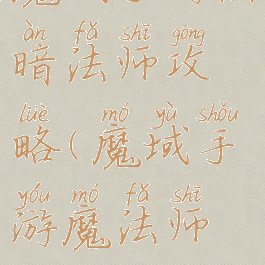 àn fǎ shī gōng
暗法师攻
lüè mó yù shǒu
略(魔域手
yóu mó fǎ shī
游魔法师